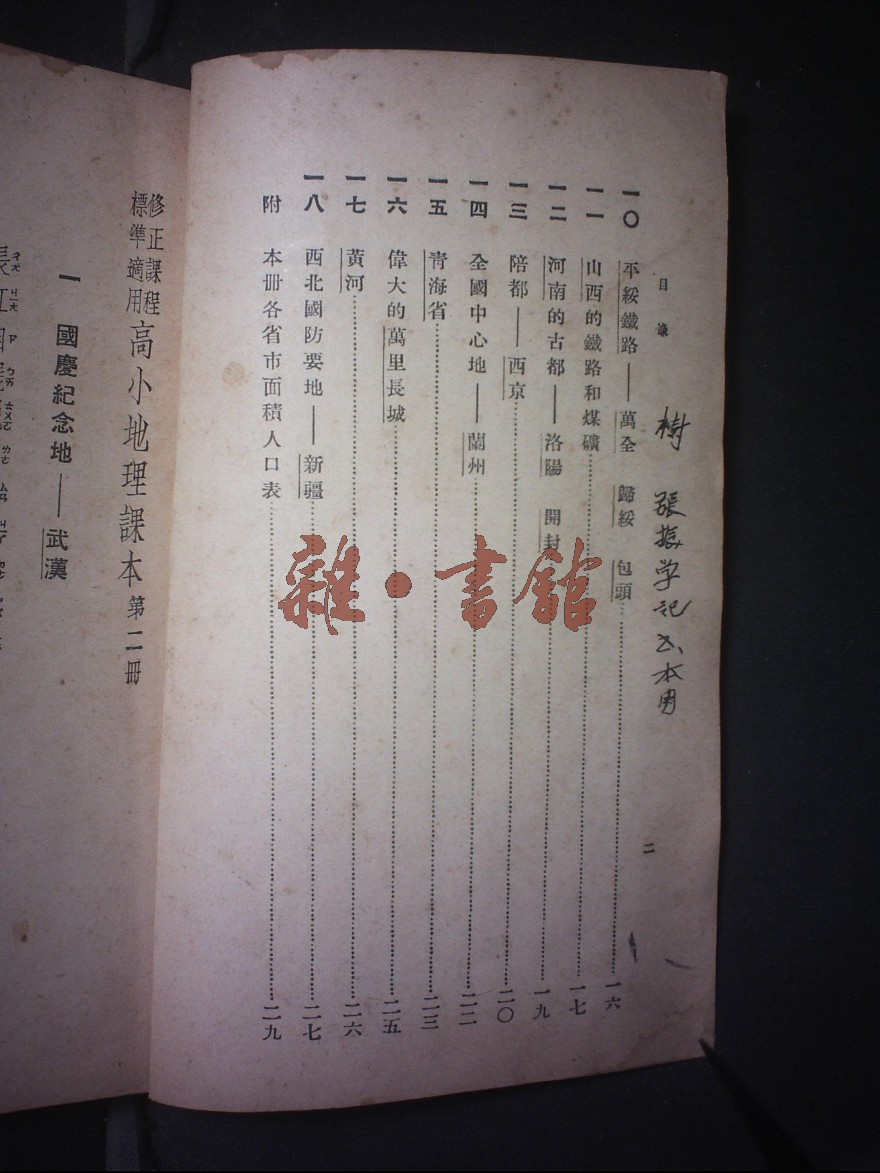 目錄
樹 張振学記 本用
一〇 平綏鐵路——萬全 歸綏 包頭……一六
一一 山西的鐵路和煤礦……一七
一二 河南的古都——洛陽 開封……一九
一三 陪都——西京……二〇
一四 全國中心地——蘭州……二二
一五 青海省……二三
一六 偉大的萬里長城……二五
一七 黃河……二六
一八 西北國防要地——新疆……二七
附 本册各省市面積人口表……二九
二
修正課程
標準適用
高小地理課本 第二冊
一 國慶紀念地——武漢
雜·書館